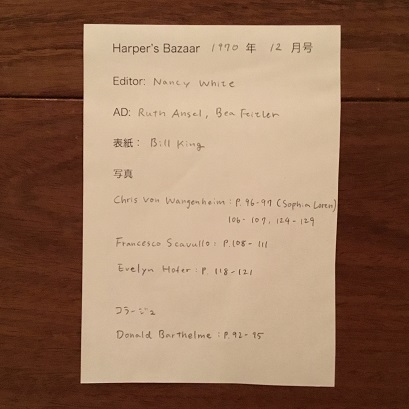 Harper's Bazaar 1970 年 12 月号
Editor: Nancy White
AD: Ruth Ansel, Bea Feitler
表紙： Bill King
写真
Chris Von Wangenheim : P. 96-97 (Sophia Loren)
106-107, 124-129
Francesco Scavullo : P. 108-111
Evelyn Hofer : P. 118-121
コラージュ
Donald Barthelme : P. 92-95